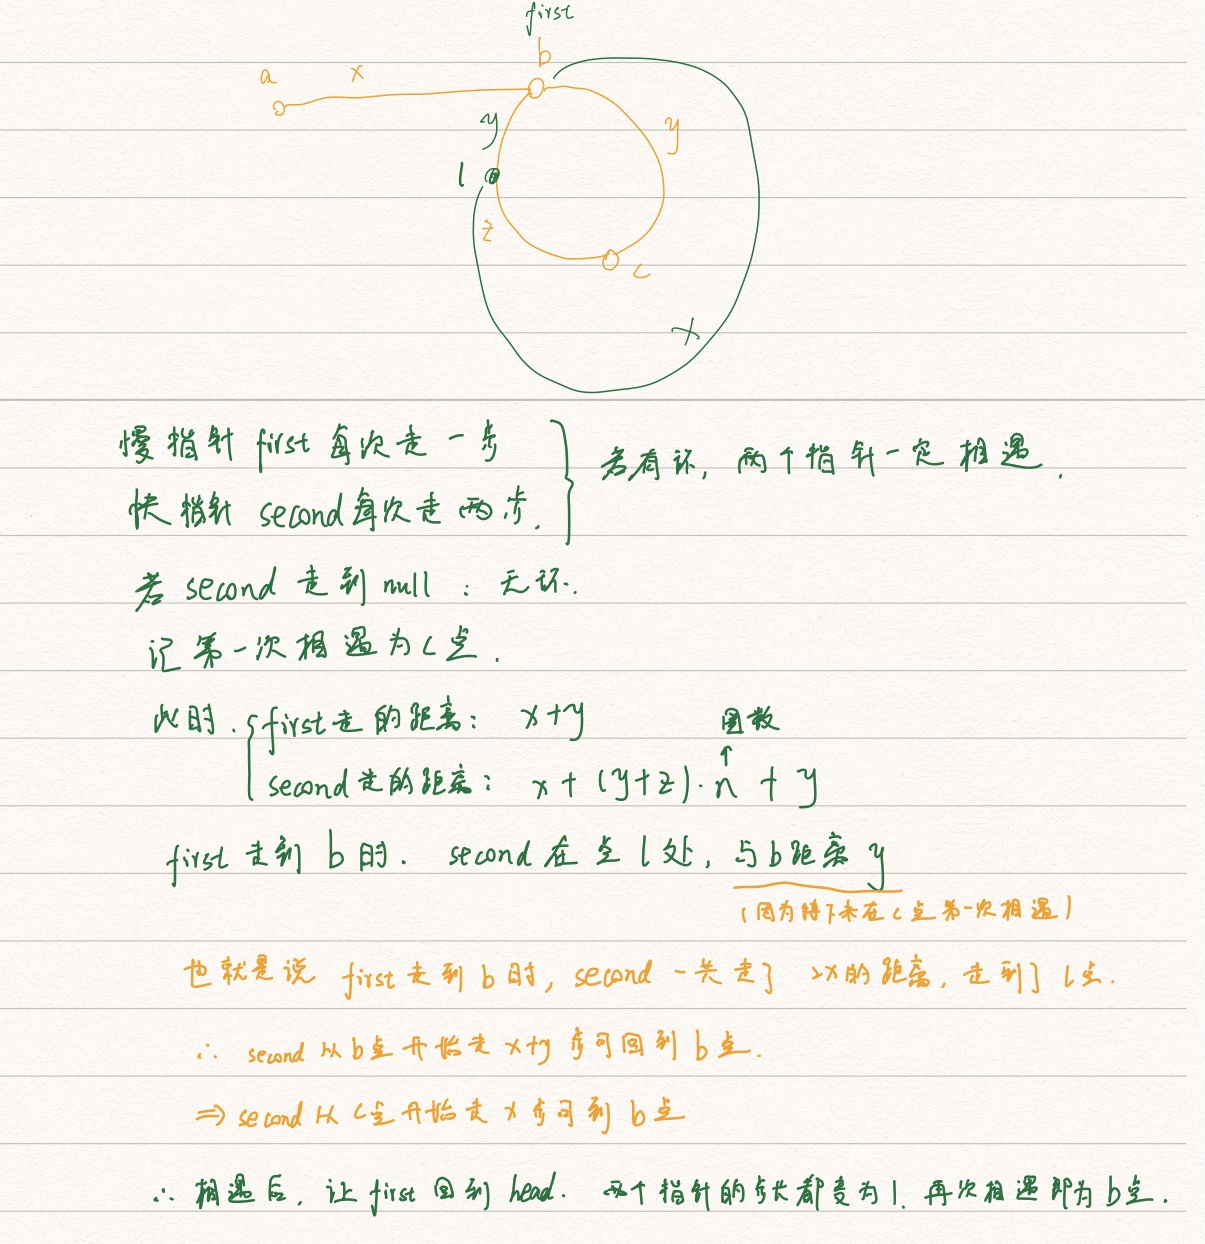 first
b
a
x
y
y
l
z
c
x
慢指针 first 每次走一步
快指针 second 每次走两步.
若有环, 两个指针一定相遇.
若 second 走到 null : 无环.
记第一次相遇为 c 点.
此时. first 走的距离: x+y
圈数
second 走的距离: x + (y+z)·n + y
first 走到 b 时. second 在点 l 处, 与 b 距离 y
(因为接下来在 c 点第一次相遇)
也就是说 first 走到 b 时, second 一共走了 2x 的距离, 走到了 l 点.
∴ second 从 b 点开始走 x+y 步可回到 b 点.
⇒ second 从 c 点开始走 x 步可到 b 点
∴ 相遇后, 让 first 回到 head. 两个指针的步长都变为 1. 再次相遇即为 b 点.